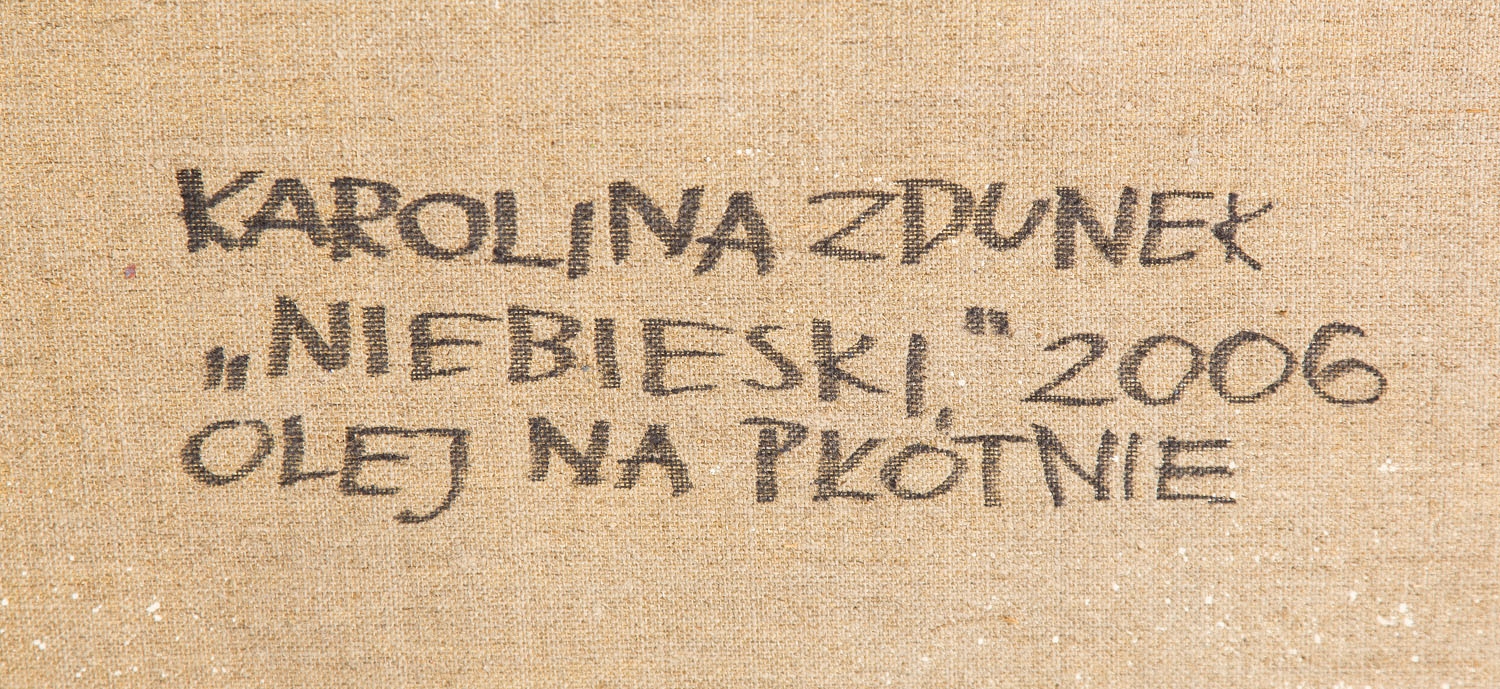 KAROLINA ZDUNEK
„NIEBIESKI” 2006
OLEJ NA PŁÓTNIE